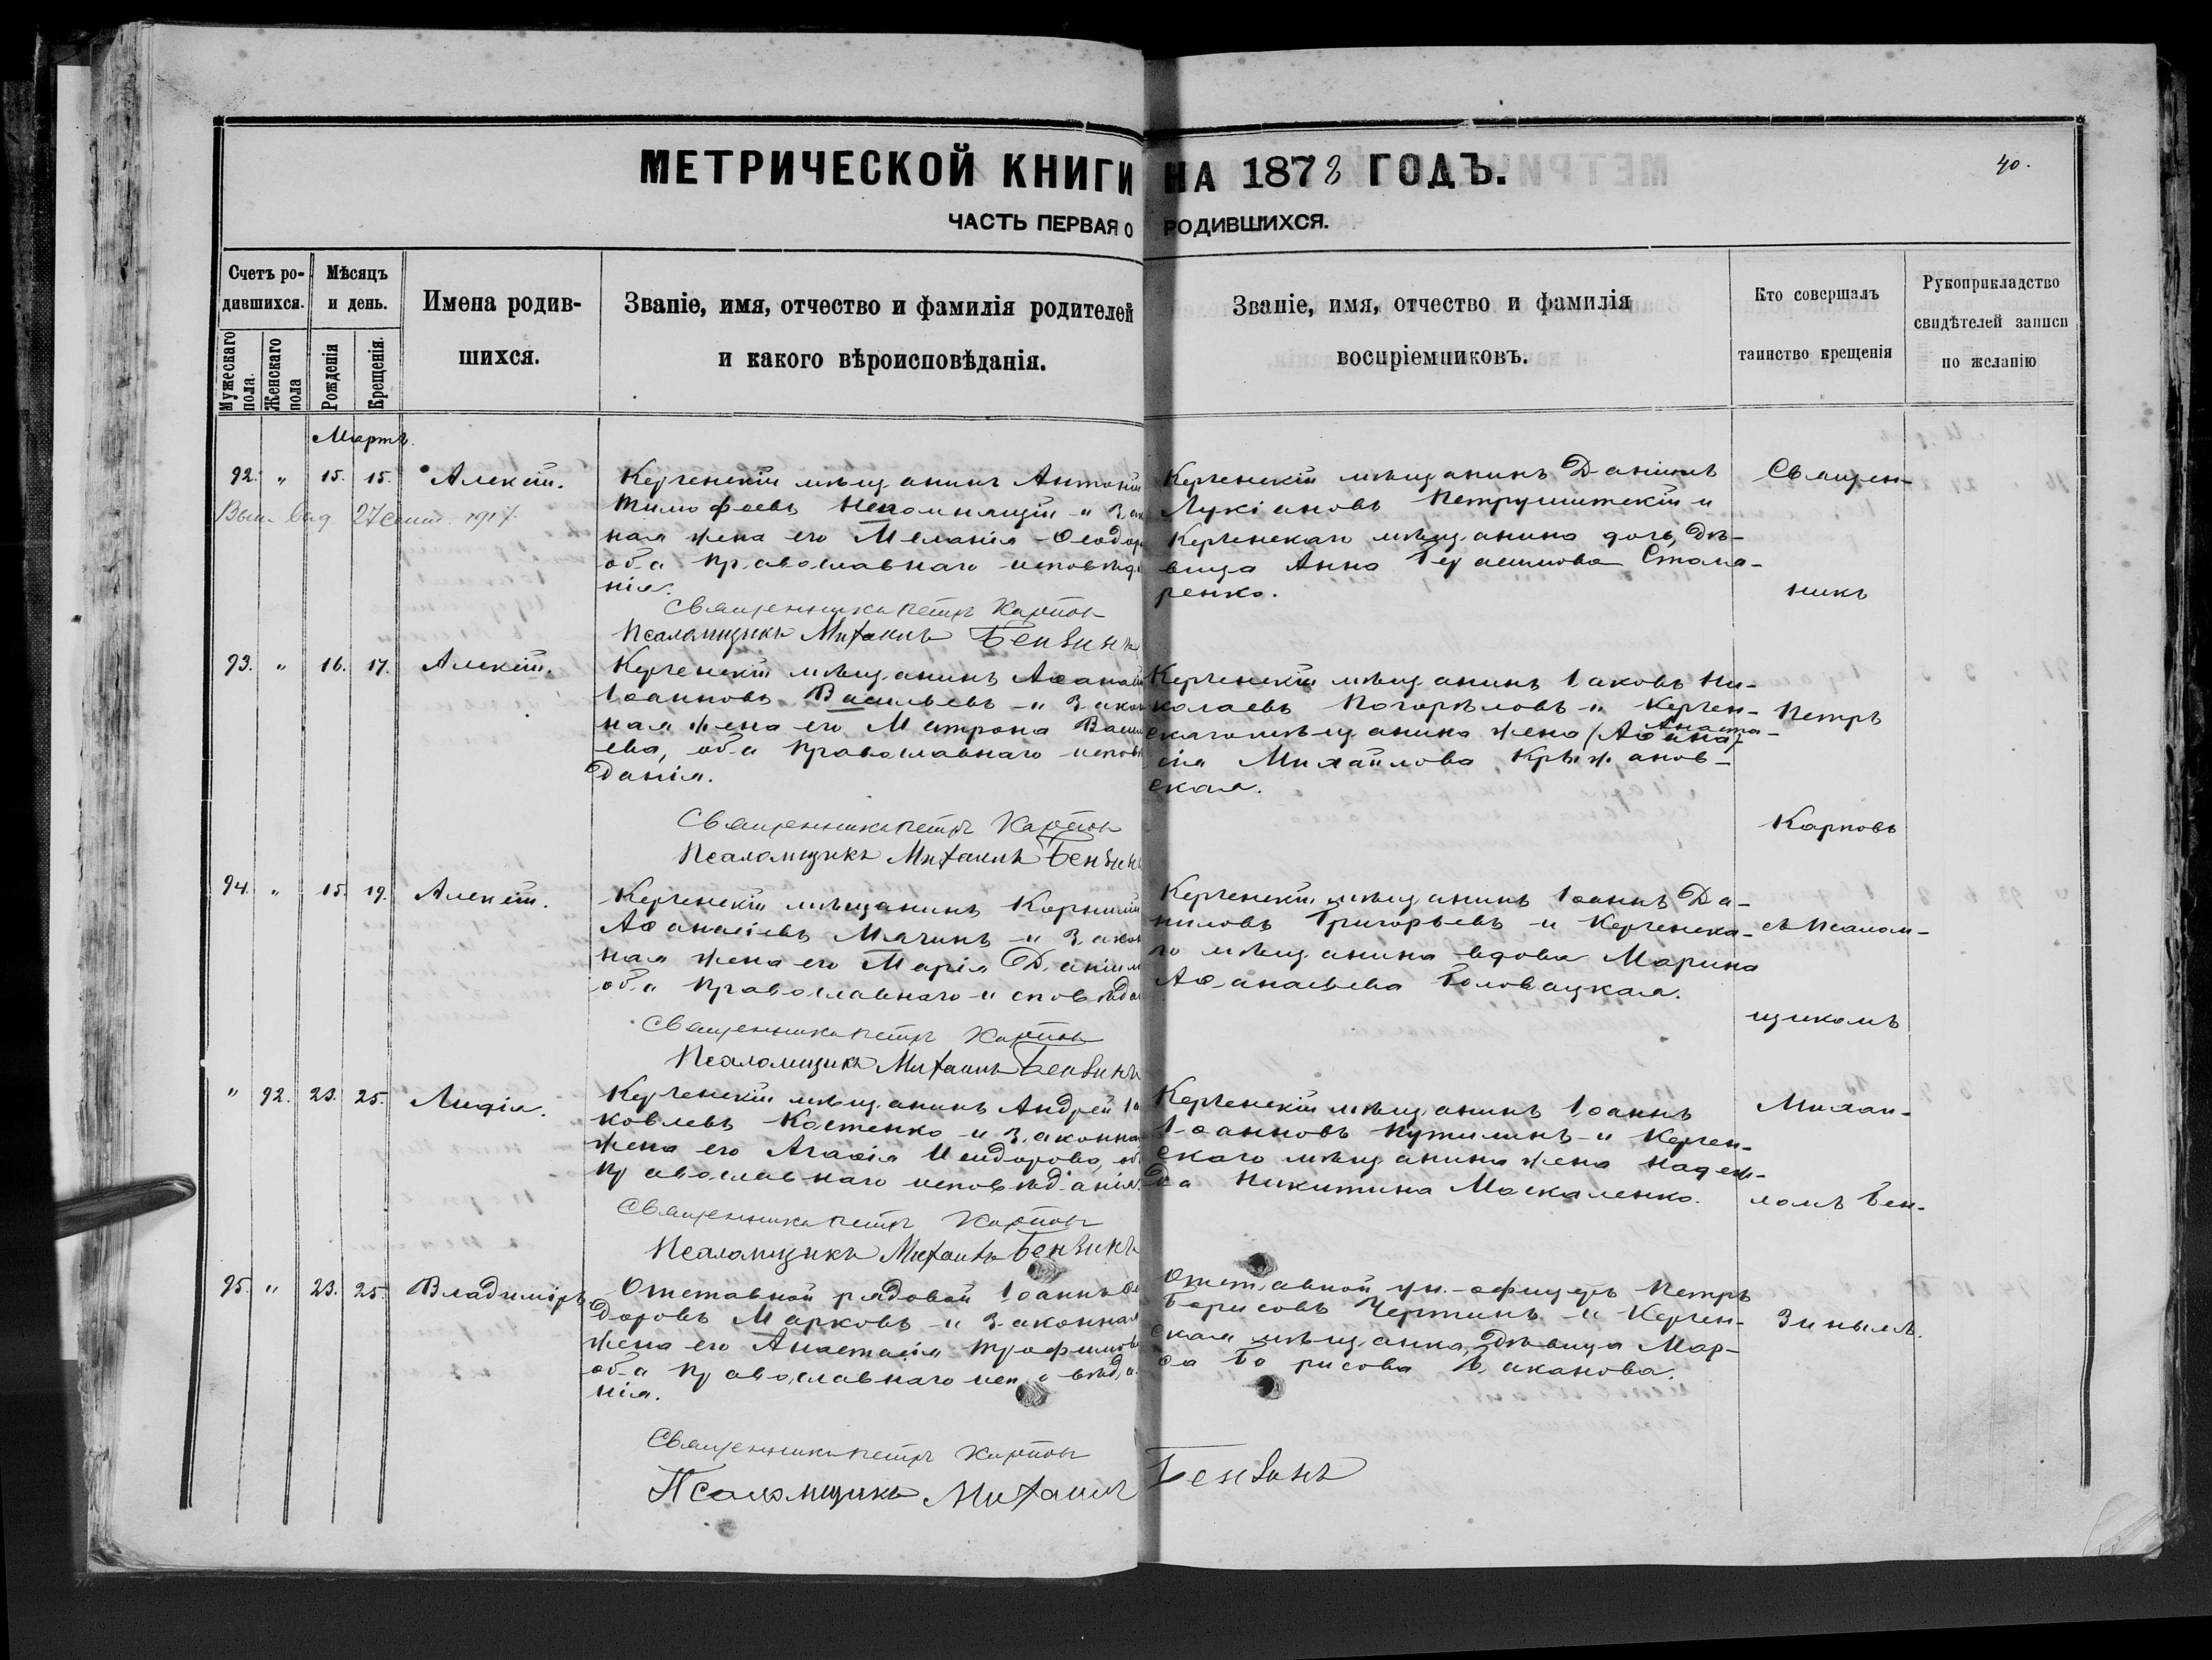 МЕТРИЧЕСКОЙ КНИГИ НА 1878 ГОДЪ.
40.
ЧАСТЬ ПЕРВАЯ О РОДИВШИХСЯ.
Счетъ ро-
дившихся.
Мужескаго пола.
Женскаго пола
Мѣсяцъ
и день.
Рожденія
Крещенія.
Имена родив-
шихся.
Званіе, имя, отчество и фамилія родителей
и какого вѣроисповѣданія.
Званіе, имя, отчество и фамилія
воспріемниковъ.
Кто совершалъ
таинство крещенія
Рукоприкладство
свидѣтелей записи
по желанію
Мартъ.
92. " 15. 15. Алексій.
27 сент. 1917.
Керченскій мѣщанинъ Антоній
Тимофеевъ Непомнящій и Зак
ная жена его Меланія Ѳеодор
оба православнаго исповѣда
нія.
Священникъ Петръ Карпов
Псаломщикъ Михаилъ Бензинъ
Керченскій мѣщанинъ Даніилъ
Лукіановъ и
Керченскаго мѣщанина дочь, дѣ-
вица Анна Герасимова
ренко.
93. " 16. 17. Алексій.
Керченскій мѣщанинъ Аѳанасій
Іоанновъ Васильевъ и Закон
ная жена его Матрона Васил
ева, оба православнаго исповѣ
данія.
Священникъ Петръ Карпов
Псаломщикъ Михаилъ Бензинъ
Керченскій мѣщанинъ Іаковъ Ни-
колаевъ Погорѣловъ и Керчен-
скаго мѣщанина жена (Аѳана) Анаста-
сія Михайлова Крыжанов-
ская.
94. " 15. 19. Алексій.
Керченскій мѣщанинъ Корнилій
Аѳанасіевъ Мячинъ и Закон
ная жена его Марія Даніил
оба православнаго исповѣда
Священникъ Петръ Карпов
Псаломщикъ Михаилъ Бензинъ
Керченскій мѣщанинъ Іоаннъ Да-
ниловъ Григорьевъ и Керченска-
го мѣщанина вдова Марина
Аѳанасьева Головацкая.
" 92. 23. 25. Лидія.
Керченскій мѣщанинъ Андрей Іа
ковлевъ Костенко и Законна
жена его Агаѳія Исидорова, об
православнаго исповѣданія.
Священникъ Петръ Карпов
Псаломщикъ Михаилъ Бензинъ
Керченскій мѣщанинъ Іоаннъ
Іоанновъ Путилинъ и Керчен-
скаго мѣщанина жена Надеж-
да Никитина Москаленко.
95. " 23. 25. Владиміръ
Отставной рядовой Іоаннъ Ѳео
доровъ Марковъ и Законная
жена его Анастасія Трофимова
оба православнаго исповѣда-
нія.
Священникъ Петръ Карпов
Псаломщикъ Михаилъ Бензинъ
Отставной ун.-офицеръ Петръ
Борисовъ и Керчен-
ская мѣщанка, дѣвица Мар-
Борисова
Священ-
никъ
Петръ
Карповъ
съ псалом-
щикомъ
Михаи-
ломъ Бен-
зинымъ.